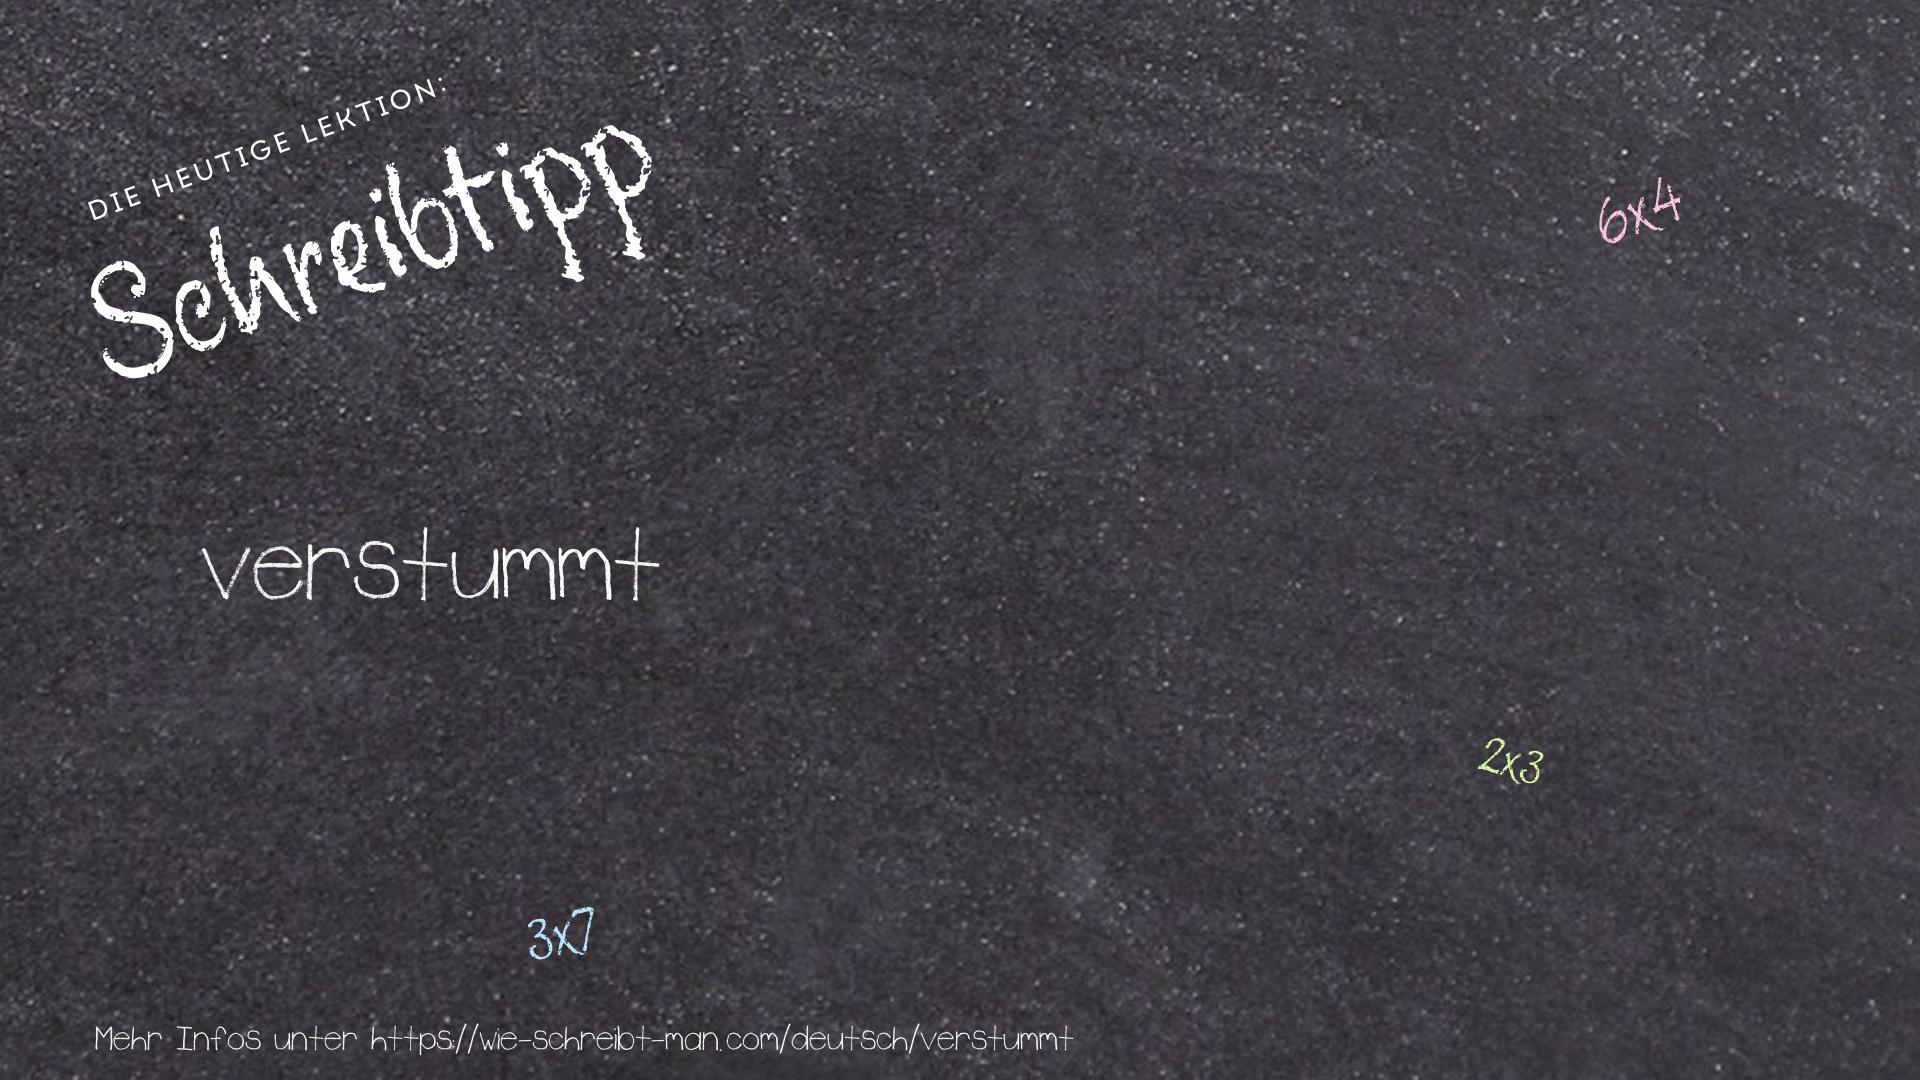 DIE HEUTIGE LEKTION:
Schreibtipp
6x4
verstummt
2x3
3x7
Mehr Infos unter https://wie-schreibt-man.com/deutsch/verstummt